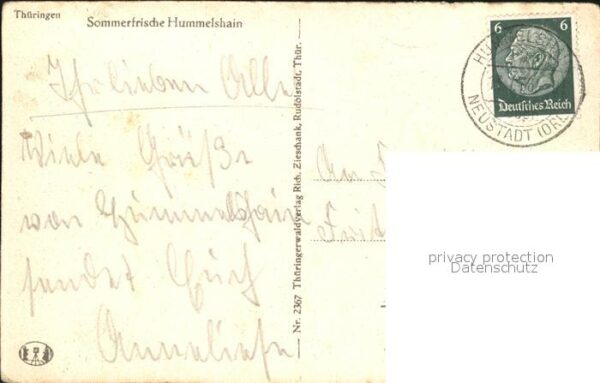 Thüringen
Sommerfrische Hummelshain
Ihr lieben Alle
Viele Grüße
von Hummelshain
sendet Euch
Anneliese
Nr. 2367 Thüringerwaldverlag Rich. Zieschank, Rudolstadt, Thür.
6 6
Deutsches Reich
HUMMELS
NEUSTADT (ORL
An
Frit
privacy protection
Datenschutz